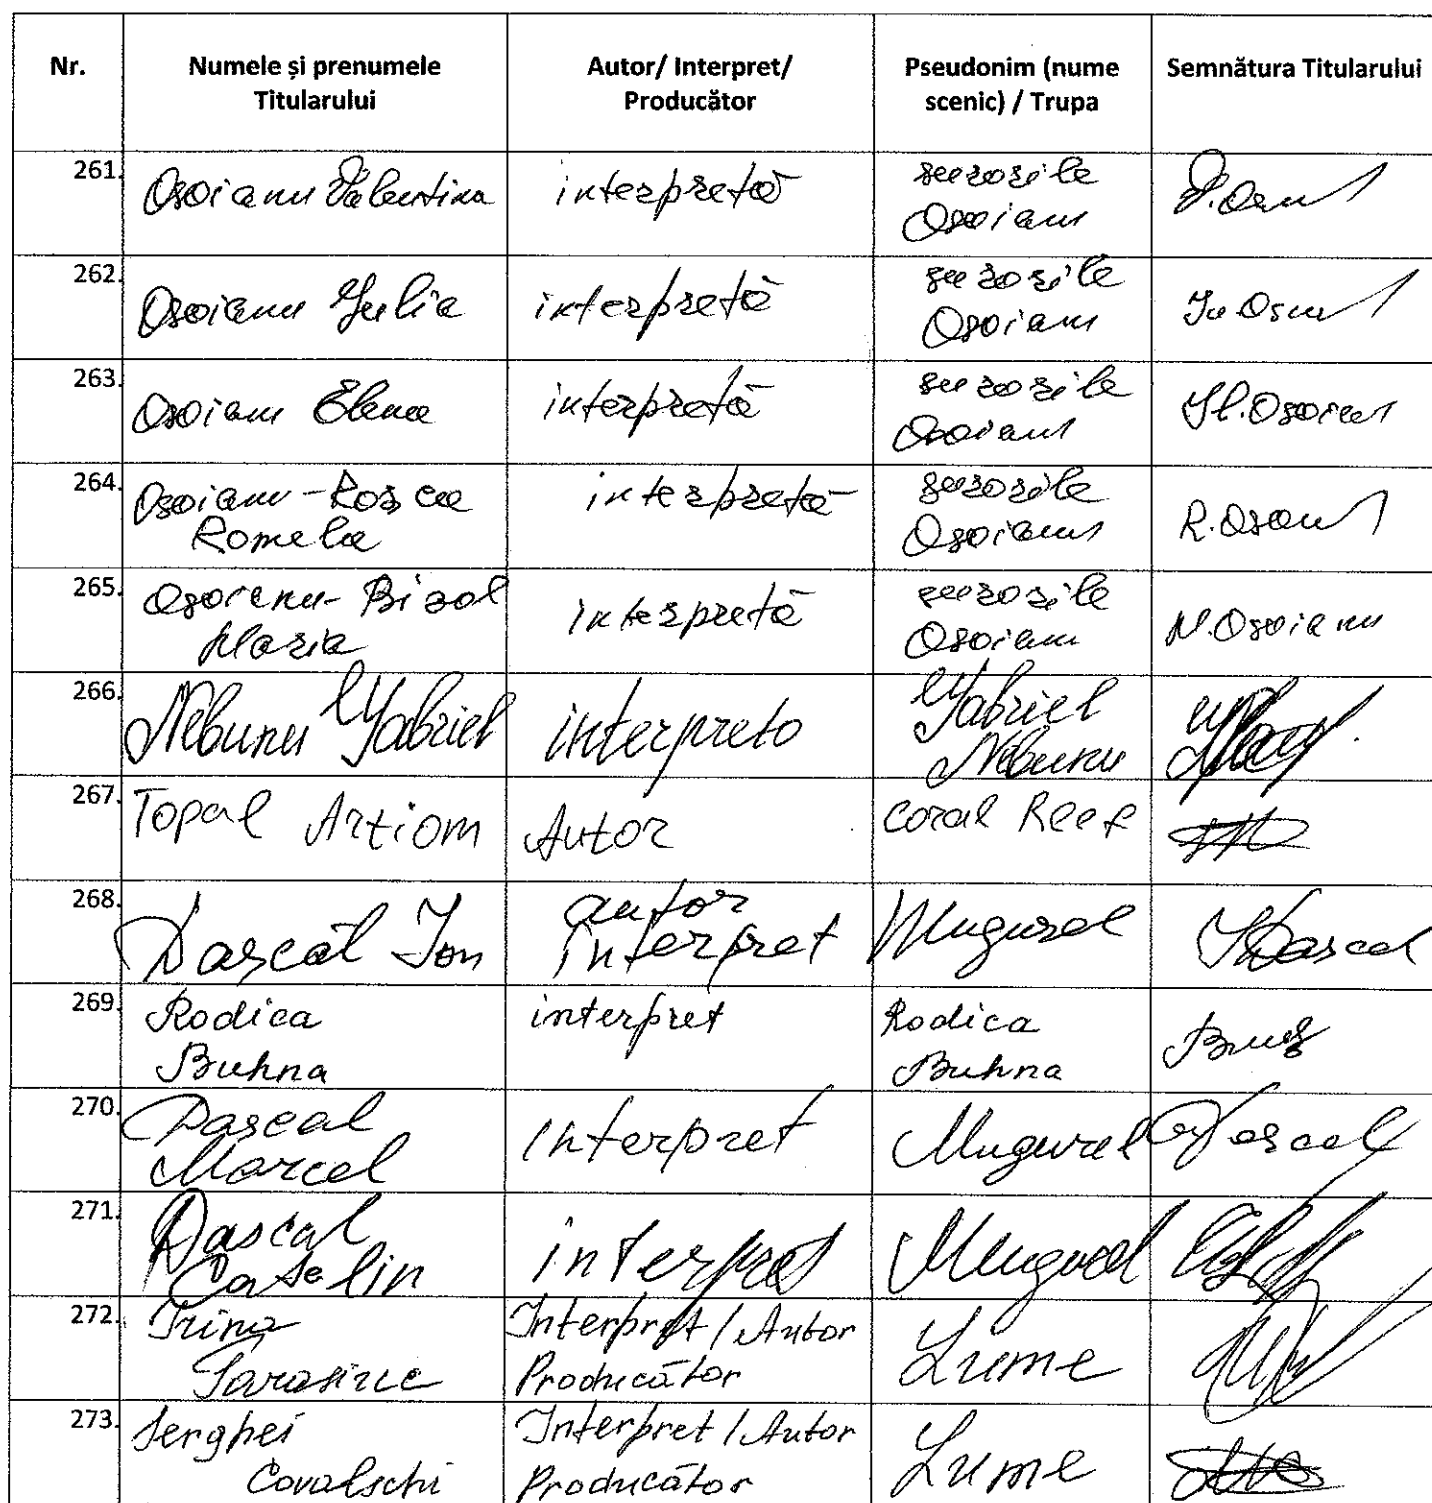 Nr. Numele și prenumele Titularului Autor/ Interpret/ Producător Pseudonim (nume scenic) / Trupa Semnătura Titularului
261. Osoianu Valentina interpretă surorile Osoianu
262. Osoianu Iulia interpretă surorile Osoianu
263. Osoianu Elena interpretă surorile Osoianu
264. Osoianu-Roșca Romela interpretă surorile Osoianu R. Osoianu
265. Osoianu-Bizol Maria interpretă surorile Osoianu M. Osoianu
266. Nebunu Gabriel interpreto Gabriel Nebunu
267. Topal Artiom Autor Coral Reef
268. Dascăl Ion autor interpret Mugurel IDascal
269. Rodica Buhna interpret Rodica Buhna
270. Dascal Marcel interpret Mugurel Dascal
271. Dascal Catelin interpret Mugurel
272. Irina Interpret / Autor Producător Lume
273. Serghei Covalschi Interpret / Autor Producător Lume